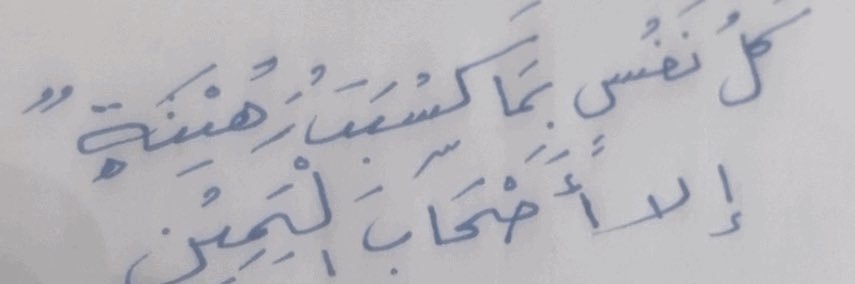 كُلُّ نَفْسٍ بِمَا كَسَبَتْ رَهِيْنَةٌ "
إلا أَصْحَابَ الْيَمِيْنِ